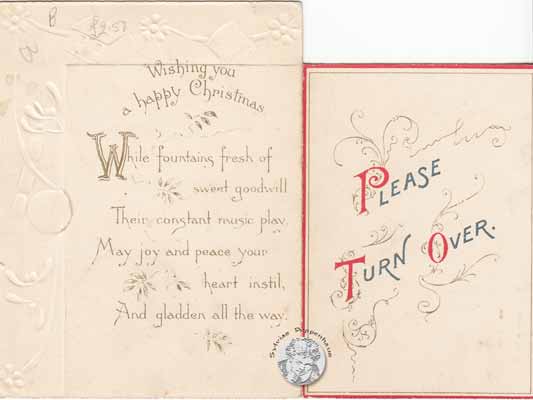 B
B
Wishing you
a happy Christmas
While fountains fresh of
sweet goodwill
Their constant music play,
May joy and peace your
heart instil,
And gladden all the way.
PLEASE
TURN OVER.
Sylvias Puppenhaus